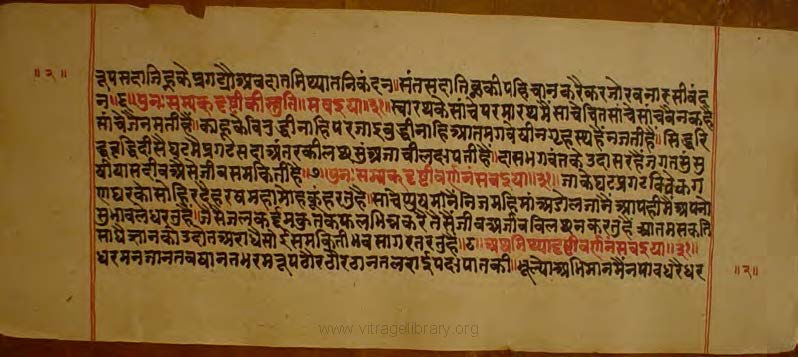 ॥२॥
रूपसदानिन्हकेप्रगट्यौअवदातमिथ्यातनिकंदन॥संतसदातिन्हकीपहिचानकरैकरजोरबनारसीवंद
न॥६॥पुनःसम्यकदृष्टीकीस्तुति॥सवइया॥३१॥स्वारथकेसांचेपरमारथमैंसाचेचितसांचेसाचेवैनकहै
सांचेजैनमतीहैं॥काहूकेविरुद्धीनाहिपरजाइबुद्धीनाहिआतमगवेषीनगृहस्थहैंनजतीहैं॥सिद्धिरि
द्धवृद्धिदीसेघटमेंप्रगटसदाअंतरकीलछसुंअजाचीलक्षपतीहैं॥दासभगवंतकेउदासरहेंजगतसुंसु
षीयासदीवअैसेजीवसमकितीहैं॥७॥पुनःसम्यकदृष्टीवर्णनंसवइया॥३१॥जाकेघटप्रगटविवेकग
णधरकोसोहिरदैहरषमहामोहकुंहरतुहै॥साचोसुषमांनैनिजमहिमांअडोलजानेआपहीमैंअपनो
सुभावलेधरतुहैं॥जैसेजलकर्द्दमकुतकफलभिन्नकरैतैसेंजीवअजीवविलछनकरतुहैं आतमसकति
साधैज्ञानकोउदोतअराधैसोईसमकितीभवसागरतरतुहै॥८॥अथमिथ्यादृष्टीवर्णनंसवइया॥३१॥
धरमनजानतवषानतभरमरूपठौरठौरठानतलराईपक्षपातकी॥भूल्योअभिमानमैंनपावधरैधर
॥२॥
www.vitragelibrary.org